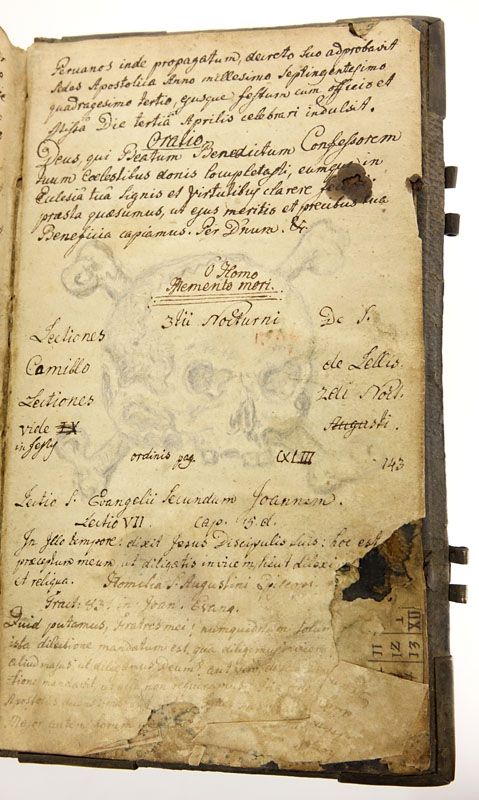 Peruanos inde propagatum, decreto suo adprobavit
Sedes Apostolica Anno millesimo septingentesimo
quadragesimo tertio, ejusque festum cum officio et
Missa Die tertia Aprilis celebrari indulsit.
Oratio
Deus, qui Beatum Benedictum Confessorem
tuum Coelestibus donis locupletasti, eumque in
Ecclesia tua signis et virtutibus clarere
praesta quaesumus, ut ejus meritis et precibus tua
Beneficia capiamus. Per Dnum. &c.
O Homo
Memento mori.
Lectiones 2dii Nocturni De S.
Camillo de Lellis.
Lectiones 2di Noct.
vide IX Augusti.
in festis ordinis pag. CXLIII 143
Lectio S. Evangelii secundum Joannem.
Lectio VII. Cap. 15. d.
In illo tempore: dixit Jesus Discipulis suis: hoc est
praeceptum meum ut diligatis invicem sicut dilexi
et reliqua. Homilia S. Augustini Episcop.
Tract. 83. in Joan. Evang.
Quid putamus, Fratres mei! numquidnam solum
ista dilectione mandatum est, qua diligimus invicem
aliud majus, ut diligamus Deum? aut vero
non
Apostolis
autem horum
IIX
13
12
11